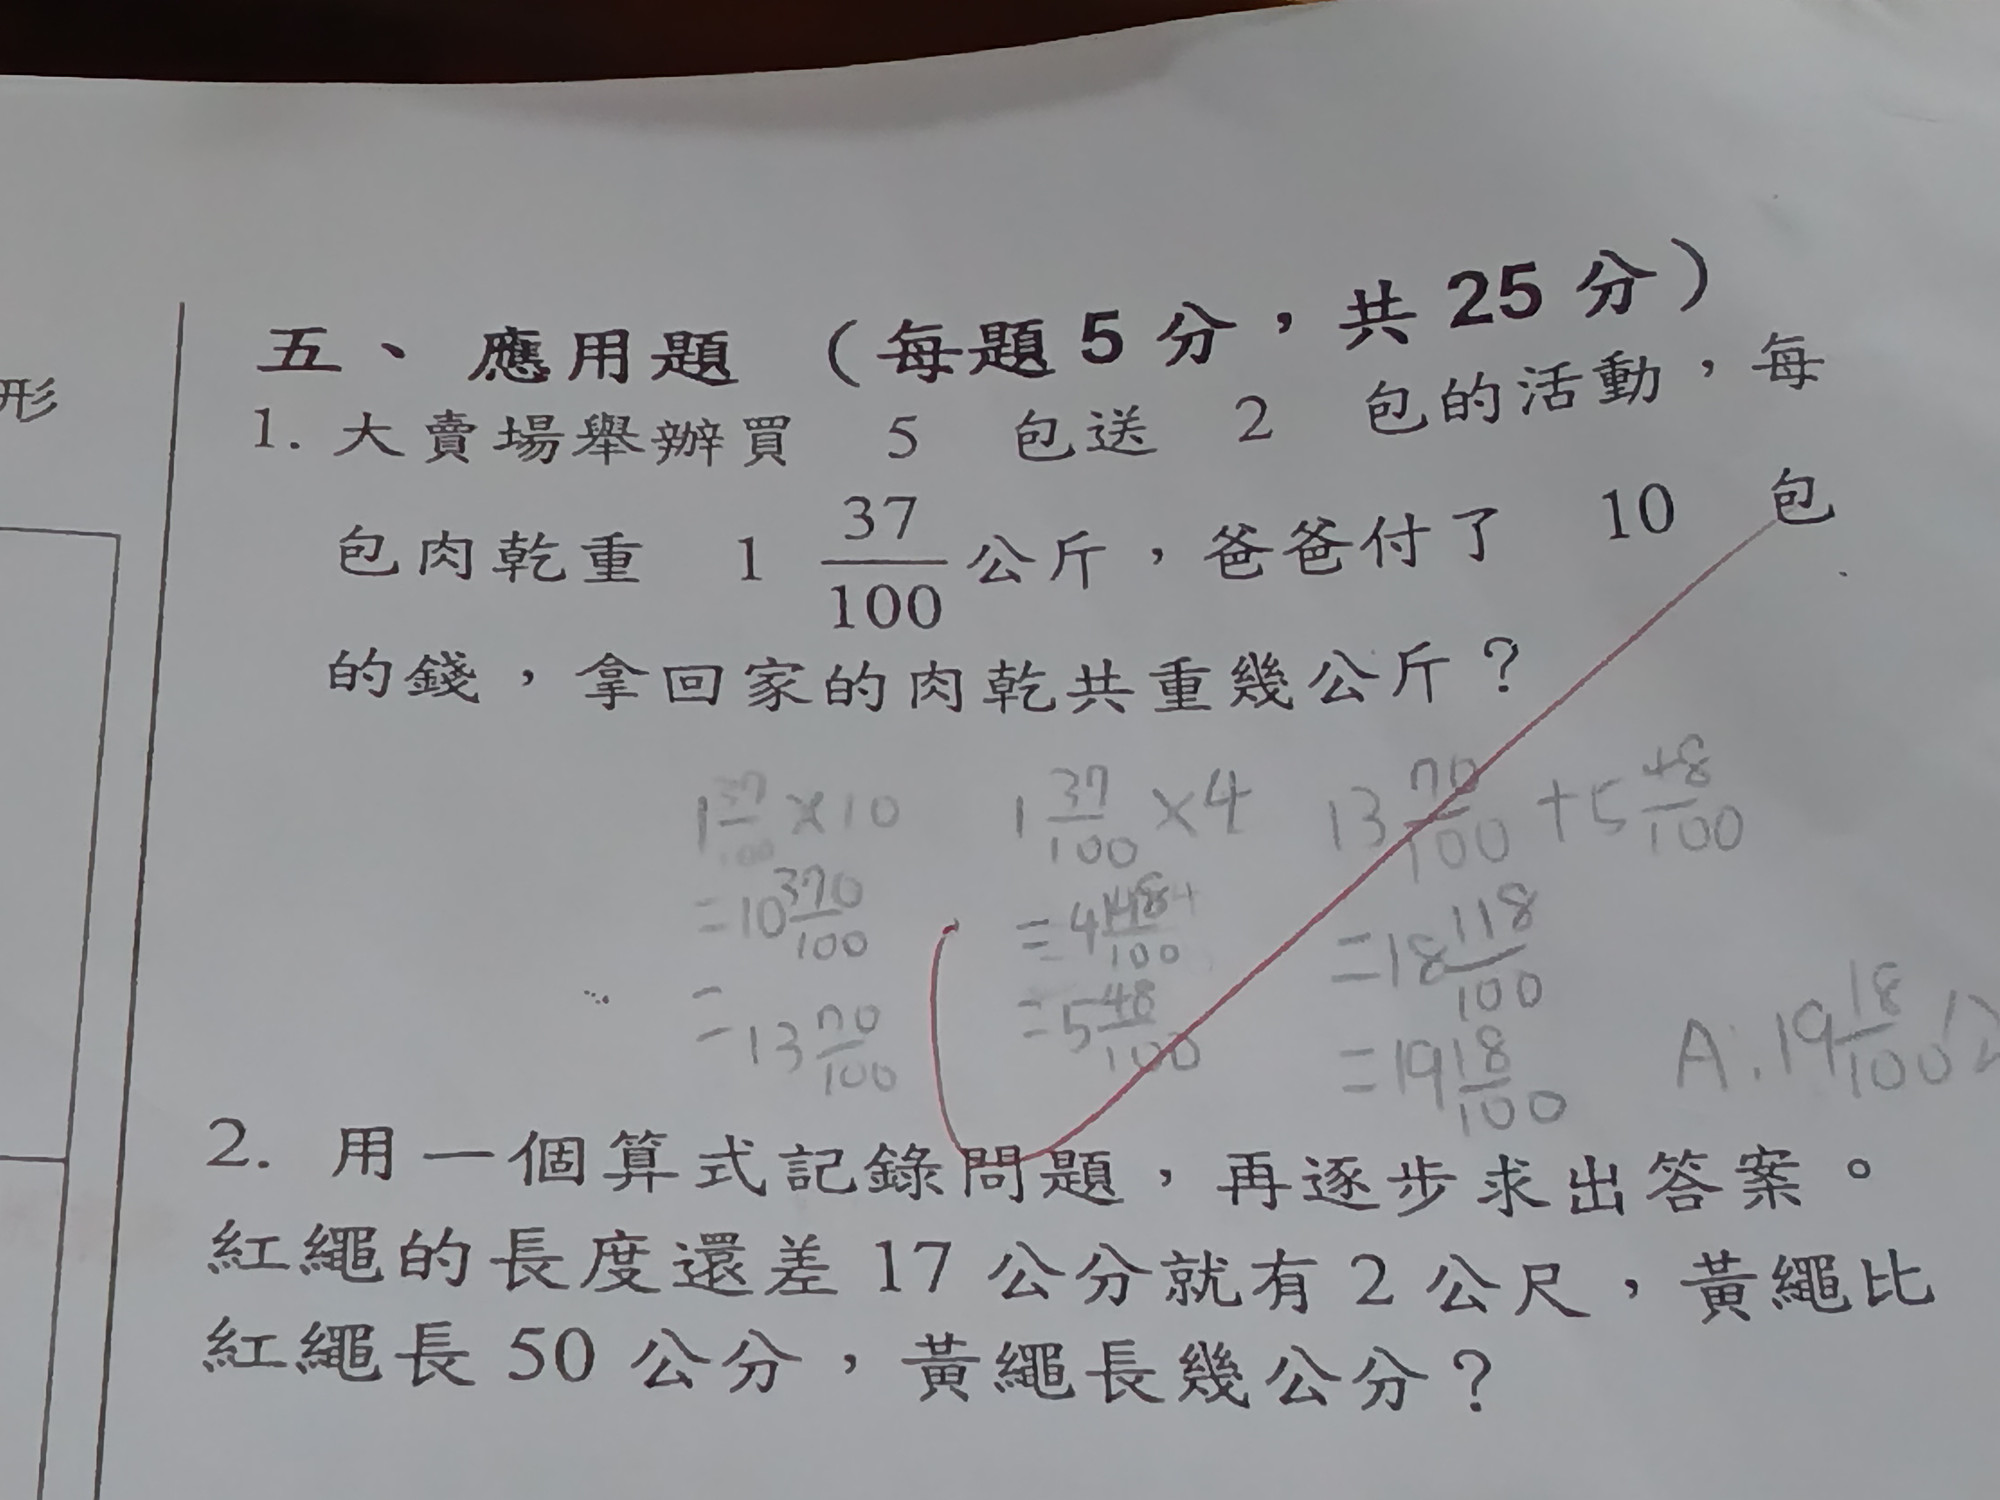 形
五、應用題（每題5分，共25分）
1. 大賣場舉辦買 5 包送 2 包的活動，每
包肉乾重 1 37/100 公斤，爸爸付了 10 包
的錢，拿回家的肉乾共重幾公斤？
1 37/100 ×10 1 37/100 ×4 13 70/100 +5 48/100
=10 370/100 =4 148/100 =18 118/100
=13 70/100 =5 48/100 =19 18/100 A:19 18/100
2. 用一個算式記錄問題，再逐步求出答案。
紅繩的長度還差17公分就有2公尺，黃繩比
紅繩長50公分，黃繩長幾公分？